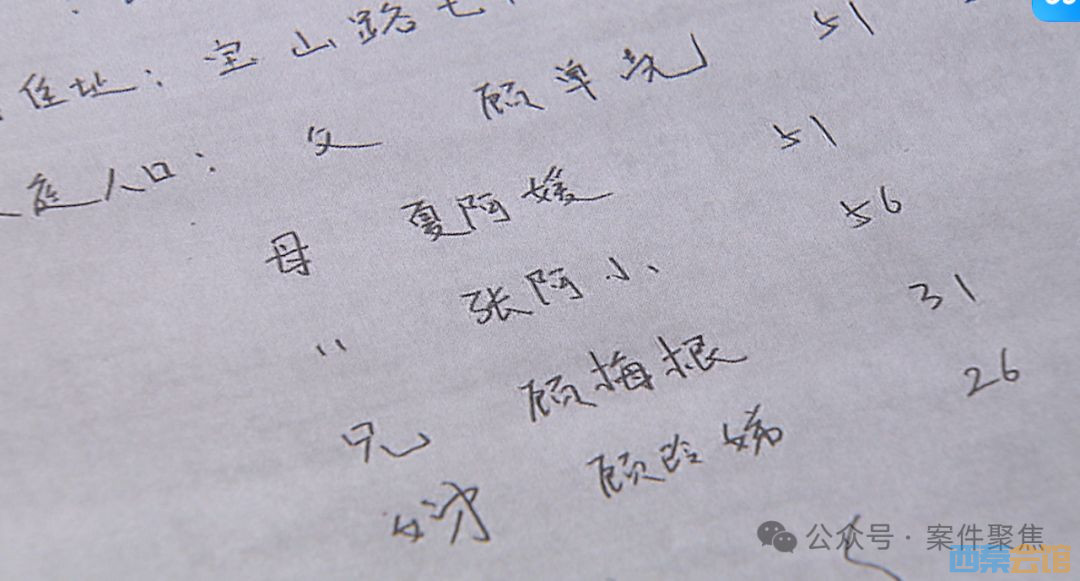 住址：宝山路七
家庭人口：父 顾单先 51
母 夏阿媛 51
〃 张阿小 56
兄 顾梅根 31
顾玲娣 26
公众号·案件聚焦
西秦会馆